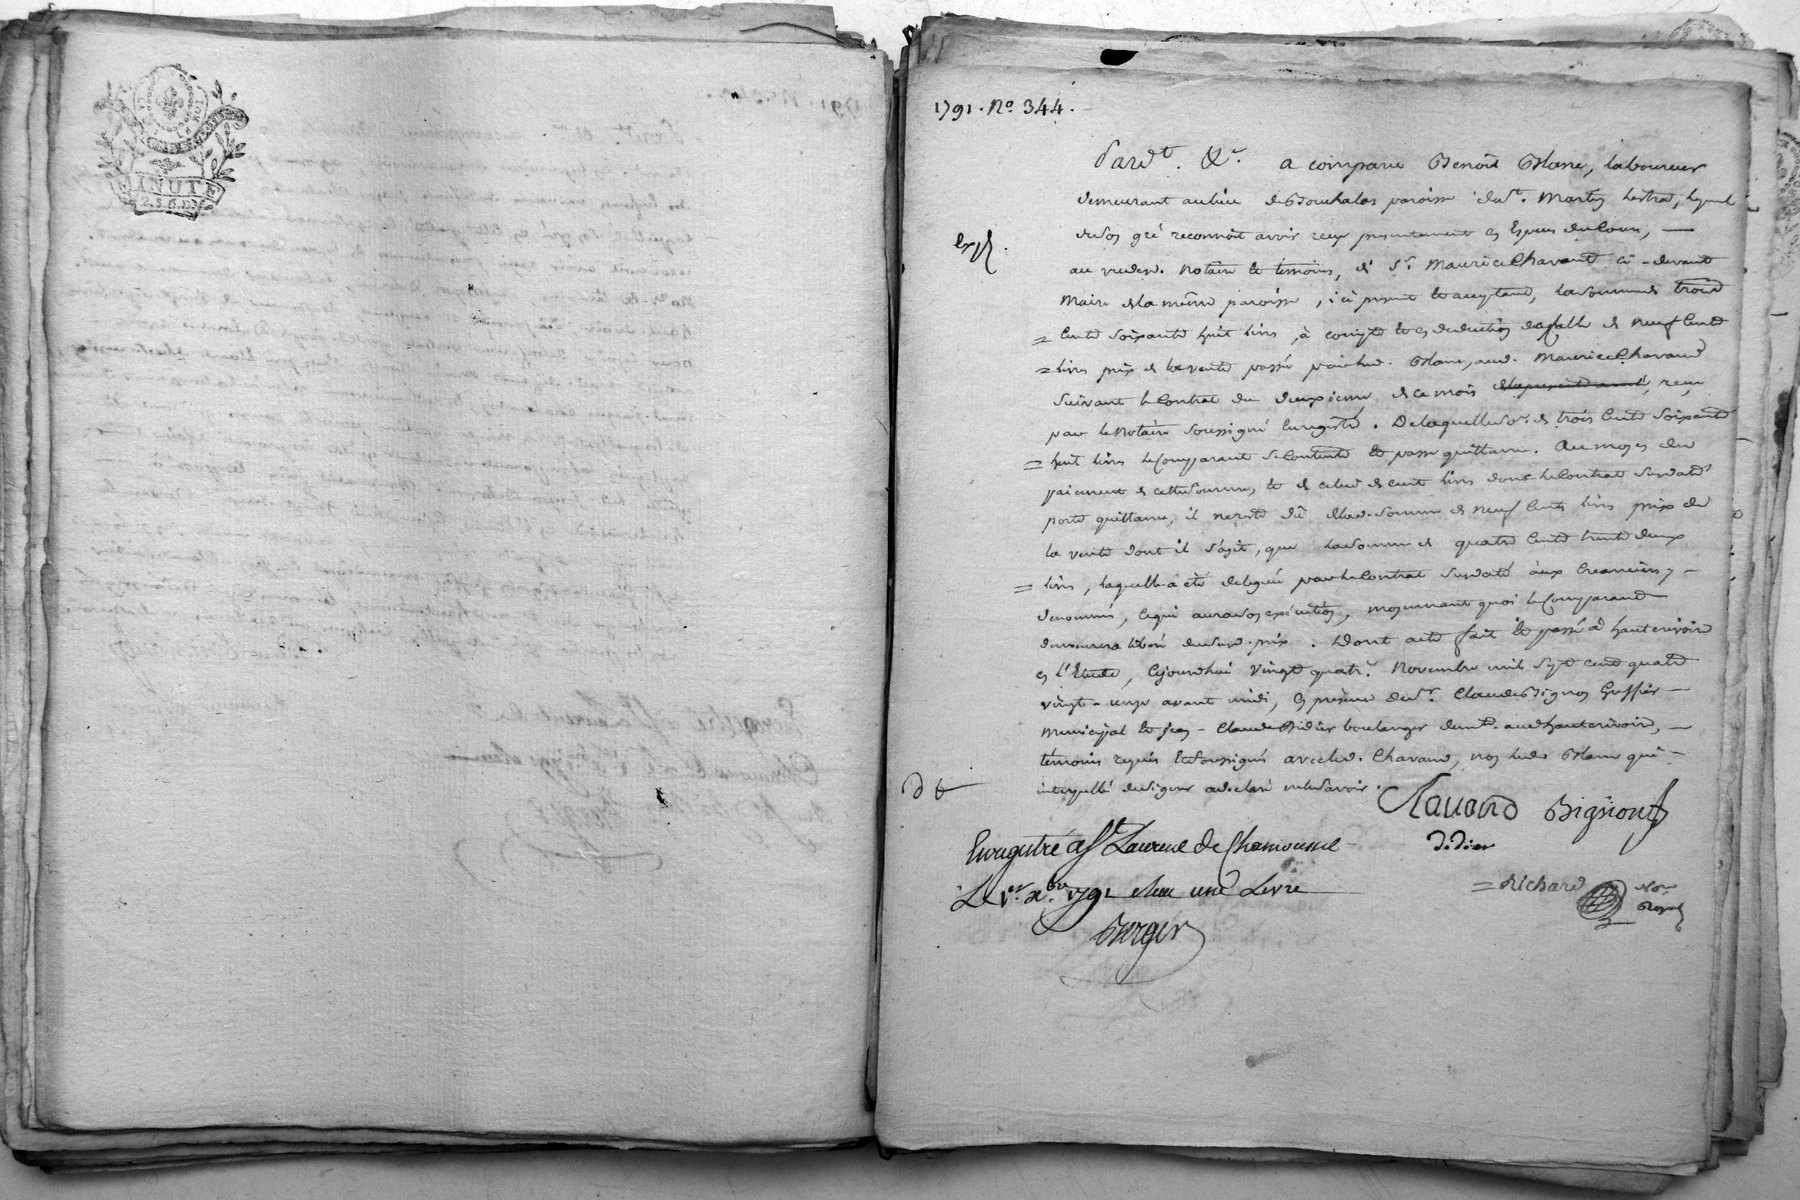 MINUTE
2.S.6.D.
1791. No. 344.
Pardt. &c. a comparu Benoit Blanc, laboureur
demeurant au lieu de Bouchalas paroisse de St. Martin Lestra, lequel
de son gré reconnoit avoir reçu presentement en Especes du Cours, —
Exp.
au vu dud. Notaire et témoins, de Sr. Maurice Chavand ci-devant
Maire de la même paroisse, ici present et acceptant, la somme de trois
= Cents soixante huit livres, à compte et en deduction de celle de neuf Cents
= livres prix de la vente passée par led. Blanc, aud. Maurice Chavand
suivant le Contrat du deuxieme de ce mois de la presente année, reçu
par le Notaire soussigné Enregistré. De laquelle so. de trois Cents soixante
= huit livres le Comparant se Contente et passe quittance. Au moyen du
paiement de cette somme, et de celle de cent livres dont le Contrat susdaté
porte quittance, il ne reste dû de lad. somme de neuf Cents livres prix de
la vente dont il s'agit, que la somme de quatre Cents trente deux
= livres, laquelle a été deleguée par le Contrat susdaté aux Creanciers y —
denommés, ce qui aura son exécution, moyennant quoi le Comparand
demeurera libéré du susd. prix. Dont acte fait et passé à hauterivoire
en l'Etude, Cejourd'hui vingt quatre. Novembre mil sept cent quatre
vingt-onze avant midi, En présence de Sr. Claude Bignon Greffier —
Municipal et Jean-Claude Didier boulanger demt. aud hauterivoire, —
témoins requis et soussignés avec led. Chavand, non led. Blanc qui —
interpellé de signer a declaré ne le savoir.
Chavand Bignon
Didier
Enregistré a St Laurent de Chamousset
Le 1er Xbre 1791 reçu une Livre
Berger
= Richard Nore
Royal